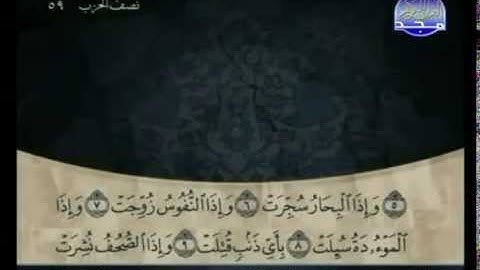 نصف الحزب ٥٩
مجد
٥ وَإِذَا ٱلْبِحَارُ سُجِّرَتْ ٦ وَإِذَا ٱلنُّفُوسُ زُوِّجَتْ ٧ وَإِذَا
ٱلْمَوْءُۥدَةُ سُئِلَتْ ٨ بِأَيِّ ذَنۢبٍ قُتِلَتْ ٩ وَإِذَا ٱلصُّحُفُ نُشِرَتْ